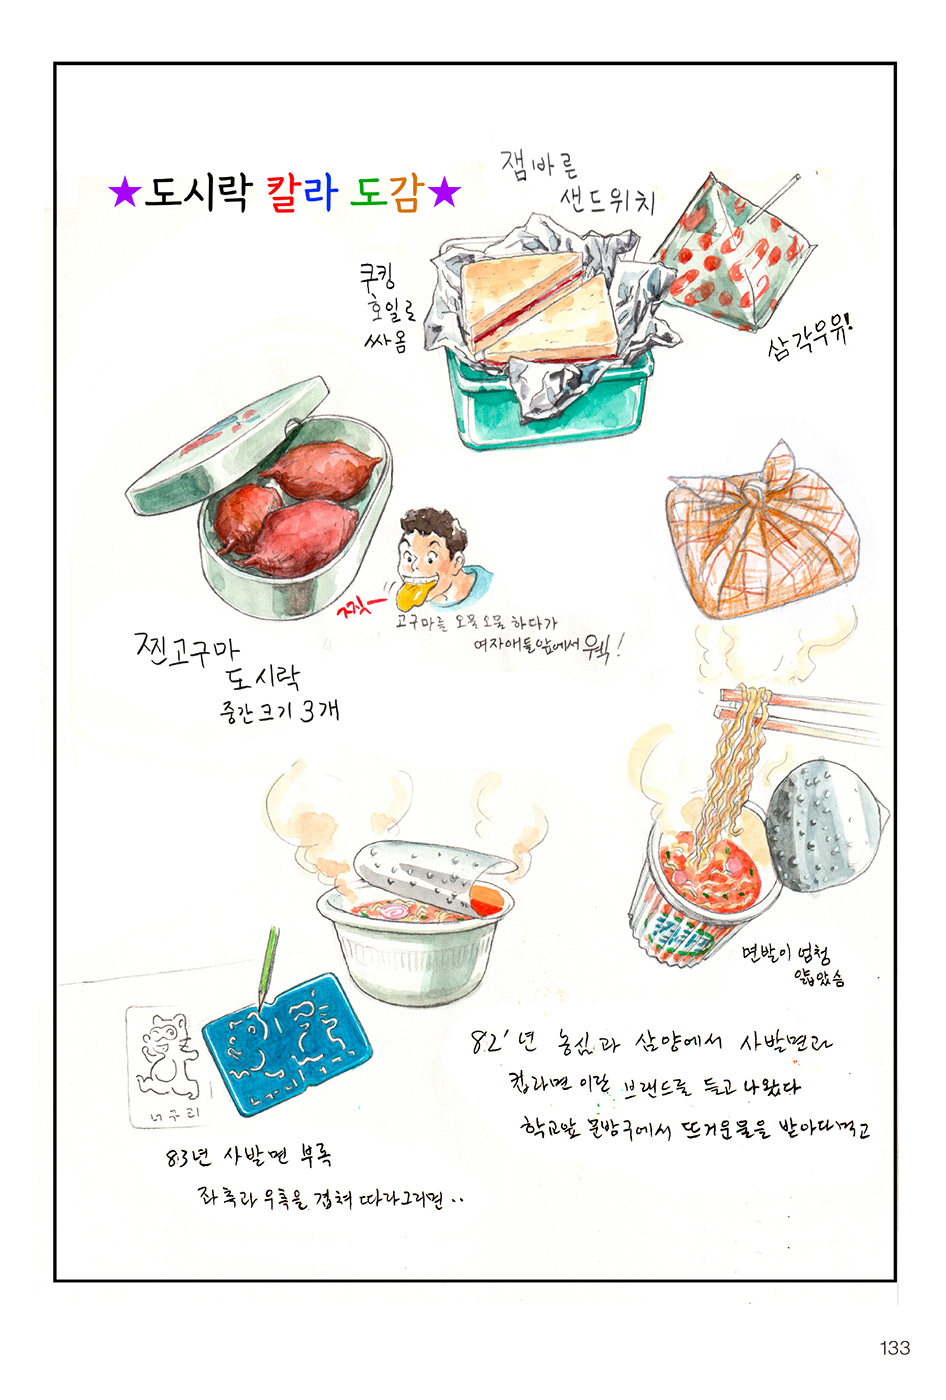 ★도시락 칼라 도감★
잼바른
샌드위치
쿠킹
호일로
싸옴
삼각우유!
찐고구마
도시락
중간크기 3개
찌익
고구마를 오물오물 하다가
여자애들앞에서 우웩!
면발이 엄청
얇았슴
82'년 농심과 삼양에서 사발면과
컵라면 이란 브랜드를 들고 나왔다
학교앞 문방구에서 뜨거운물을 받아다먹고
너구리
83년 사발면 부록
좌측과 우측을 겹쳐 따라그리면..
133